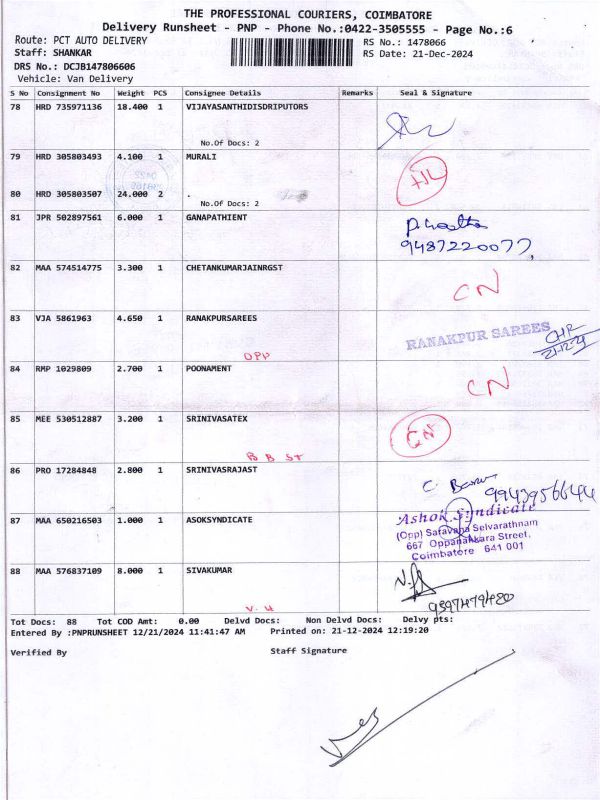 THE PROFESSIONAL COURIERS, COIMBATORE
Delivery Runsheet - PNP - Phone No.:0422-3505555 - Page No.:6
Route: PCT AUTO DELIVERY RS No.: 1478066
Staff: SHANKAR RS Date: 21-Dec-2024
DRS No.: DCJB147806606
Vehicle: Van Delivery
S No Consignment No Weight PCS Consignee Details Remarks Seal & Signature
78 HRD 735971136 18.400 1 VIJAYASANTHIDISDRIPUTORS
No.Of Docs: 2
79 HRD 305803493 4.100 1 MURALI
80 HRD 305803507 24.000 2 .
No.Of Docs: 2
81 JPR 502897561 6.000 1 GANAPATHIENT
9487220077,
82 MAA 574514775 3.300 1 CHETANKUMARJAINRGST
CN
83 VJA 5861963 4.650 1 RANAKPURSAREES
RANAKPUR SAREES
21-12-24
OPP
84 RMP 1029809 2.700 1 POONAMENT
CN
85 MEE 530512887 3.200 1 SRINIVASATEX
CN
B B ST
86 PRO 17284848 2.800 1 SRINIVASRAJAST
9943956644
87 MAA 650216503 1.000 1 ASOKSYNDICATE
Ashok Syndicate
(Opp) Saravana Selvarathnam
667 Oppanakkara Street,
Coimbatore 641 001
88 MAA 576837109 8.000 1 SIVAKUMAR
9597479480
V. H
Tot Docs: 88 Tot COD Amt: 0.00 Delvd Docs: Non Delvd Docs: Delvy pts:
Entered By :PNPRUNSHEET 12/21/2024 11:41:47 AM Printed on: 21-12-2024 12:19:20
Verified By Staff Signature